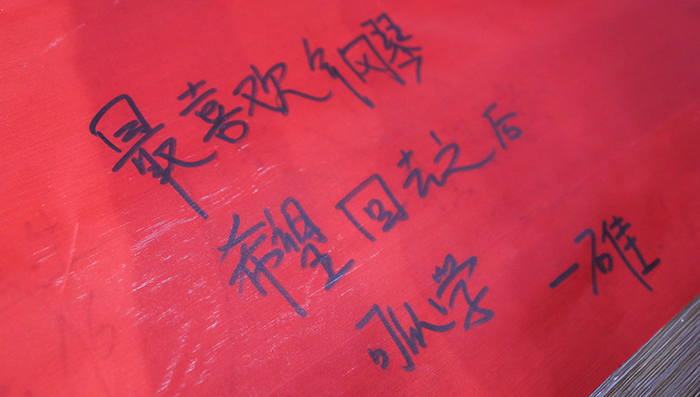 最喜欢钢琴
希望回去之后
可以学 一